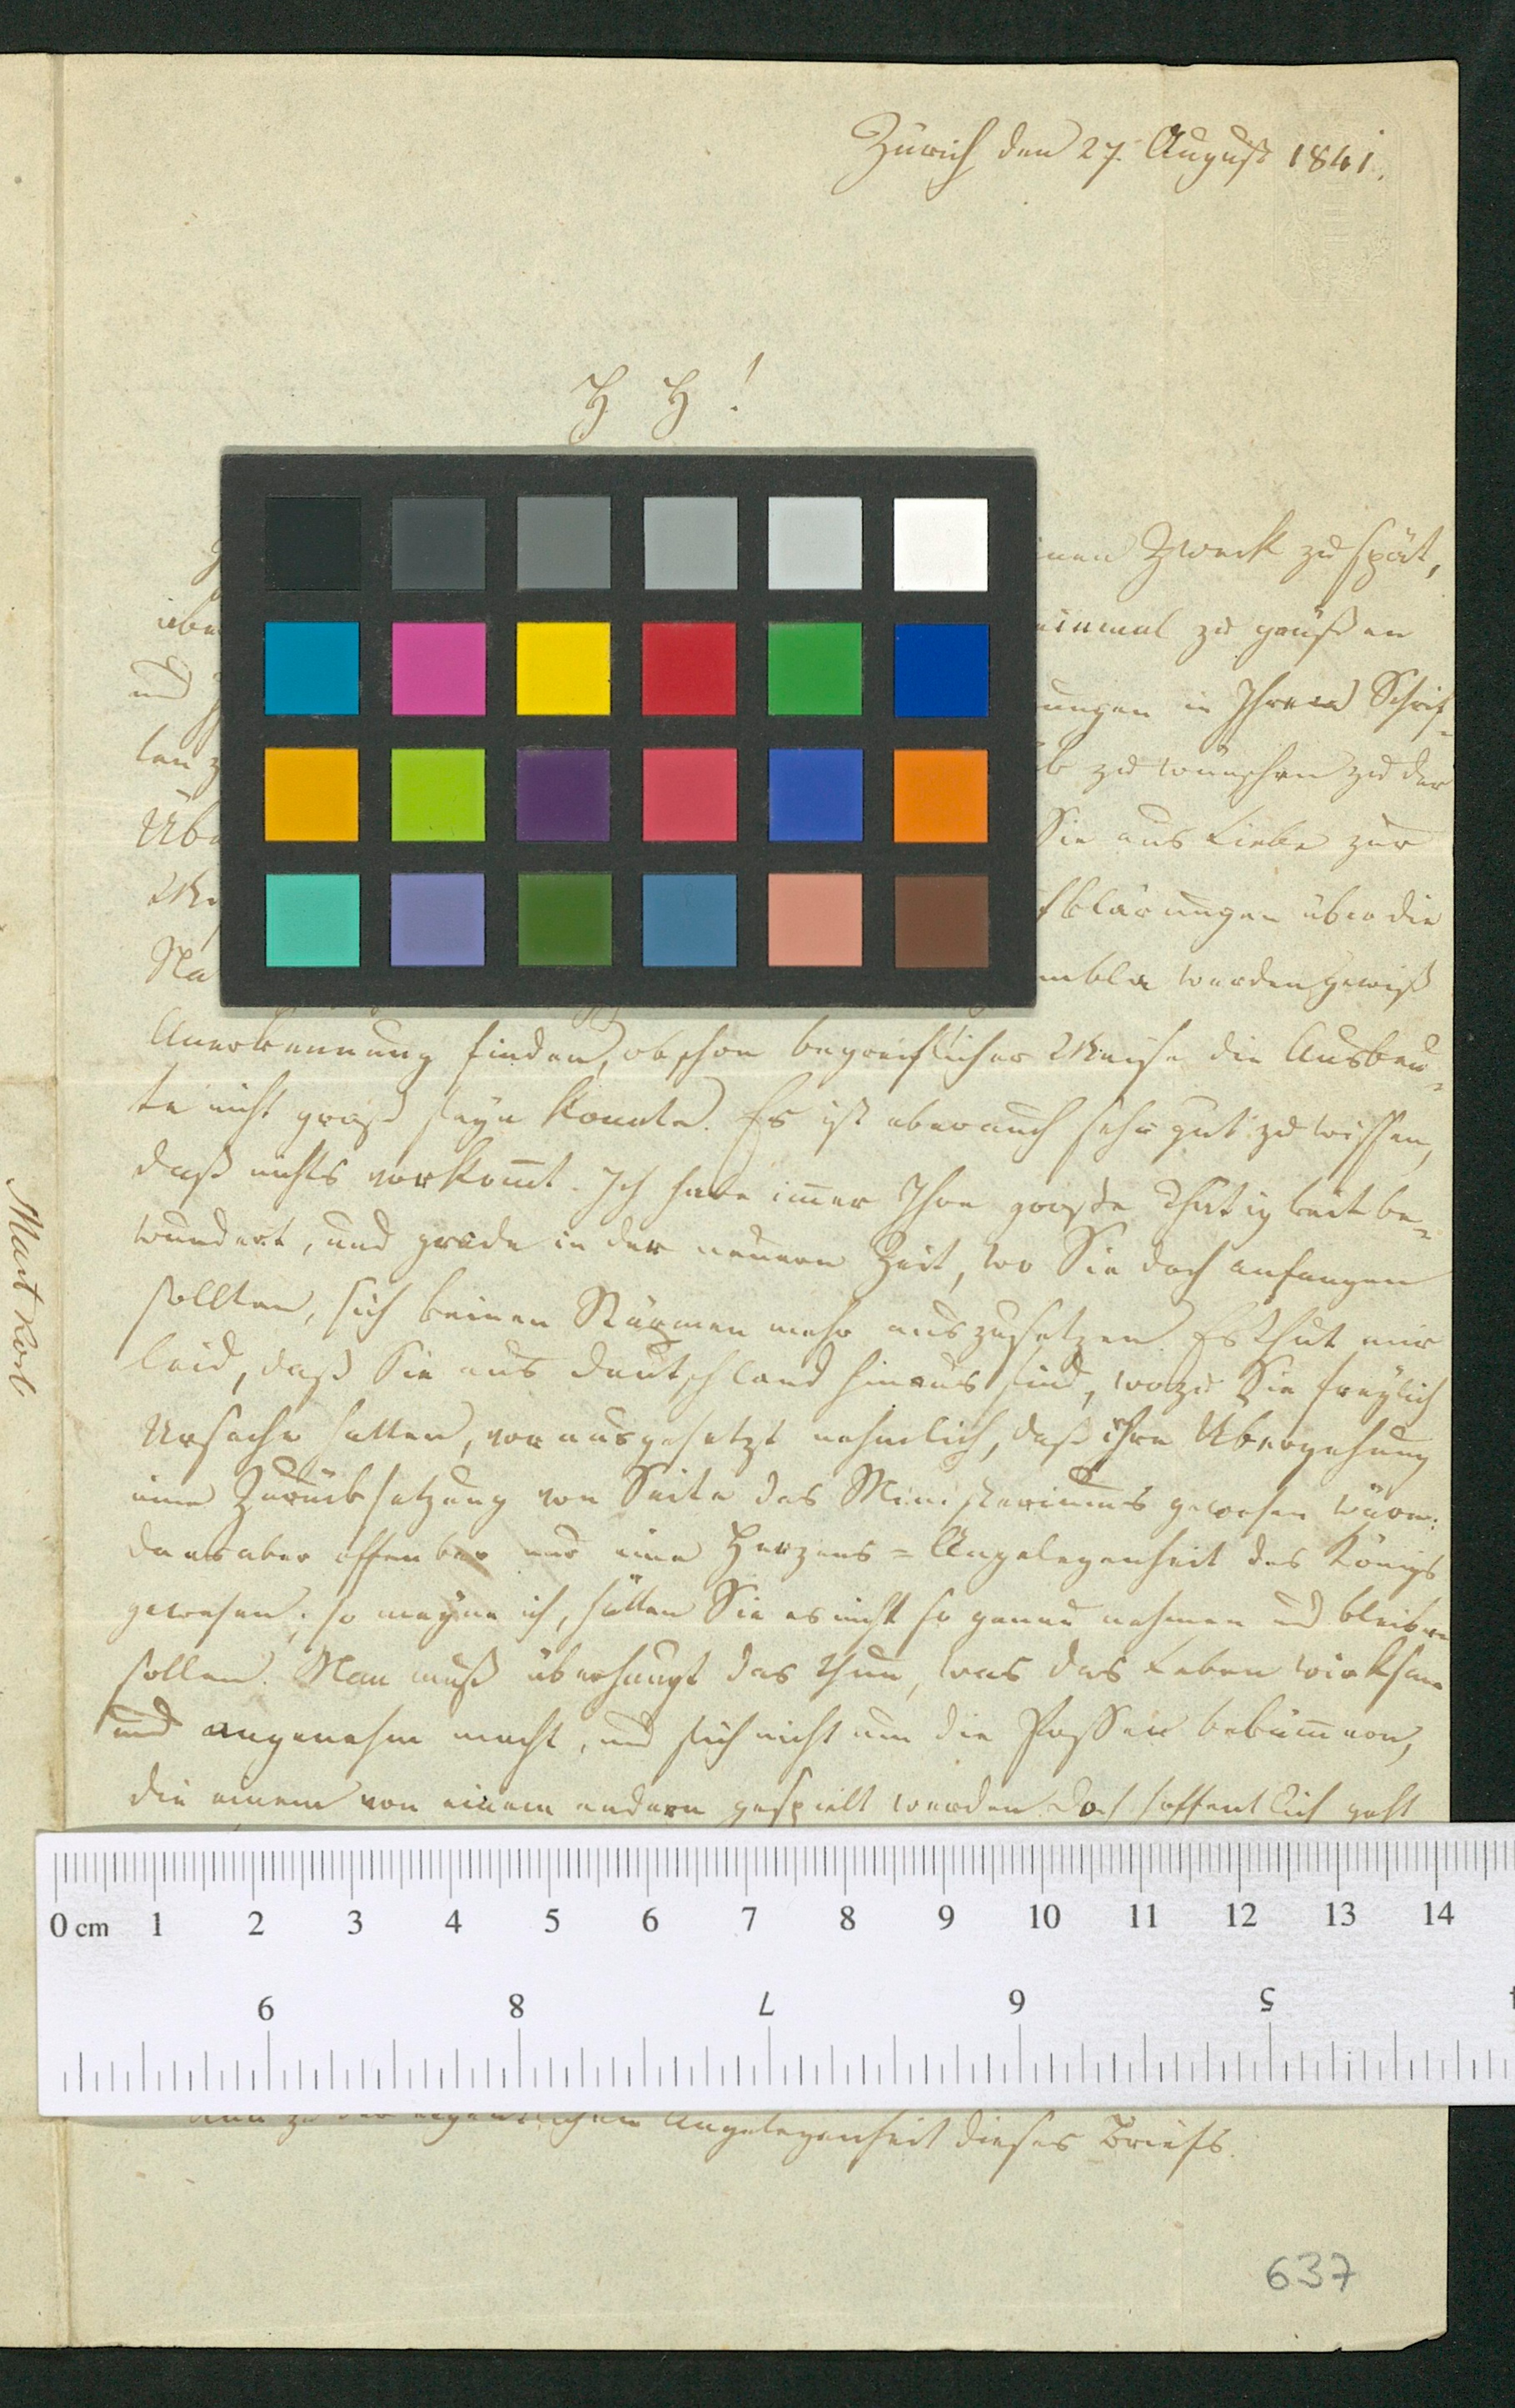 Zürich den 27. August 1841.
H H!
inen Zweck zu spät,
einmal zu grüßen
und
ungen in Ihren Schrif-
ten
zu wünschen zu der
Sie aus Liebe zur
fklärungen über die
Na
embla werden gewiß
Anerkennung finden, obschon begreiflicher Weise die Ausbeu-
te nicht groß seyn konnte. Es ist aber auch sehr gut zu wissen,
daß nichts vorkom̄t. Ich habe im̄er Ihre große Thätigkeit be-
wundert, und grade in der neuern Zeit, wo Sie doch anfangen
sollten, sich keinen Stürmen mehr auszusetzen. Es thut mir
leid, daß Sie aus Deutschland hinaus sind, wozu Sie freylich
Ursache hatten, vorausgesetzt nehmlich, daß ihre Übergehung
eine Zurücksetzung von Seite des Ministeriums gewesen wäre:
da es aber offenbar nur eine Herzens-Angelegenheit des Königs
gewesen; so meyne ich, hätten Sie es nicht so genau nehmen und bleiben
sollen. Man muß überhaupt das thun, was das Leben wirksam
und angenehm macht, und sich nicht um die Possen beküm̄ern,
die einem von einem andern gespielt werden. Doch hoffentlich geht
Nun zu der eigentlichen Angelegenheit dieses Briefs.
637
0 cm 1 2 3 4 5 6 7 8 9 10 11 12 13 14
9 8 7 6 5